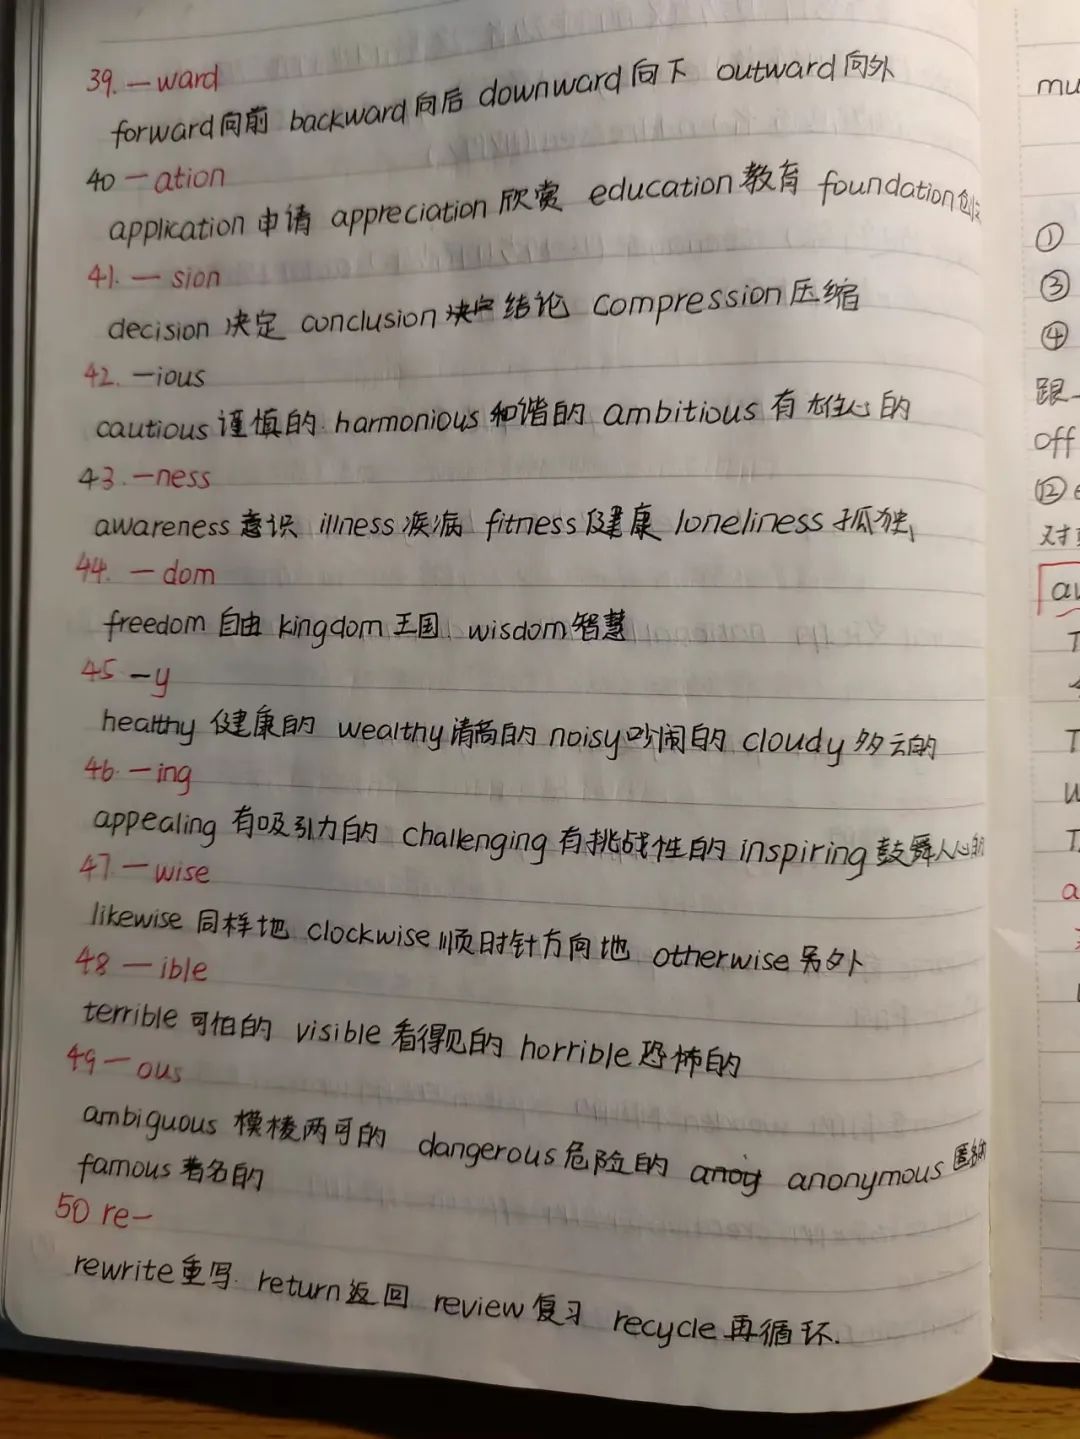 39. —ward
forward向前 backward向后 downward向下 outward向外
40 —ation
application 申请 appreciation 欣赏 education教育 foundation创
41. — sion
decision 决定 conclusion 决定 结论 compression压缩
42. —ious
cautious谨慎的 harmonious 和谐的 ambitious 有雄心的
43. —ness
awareness意识 illness疾病 fitness健康 loneliness 孤独
44. — dom
freedom 自由 kingdom王国 wisdom智慧
45 —y
healthy 健康的 wealthy清高的 noisy吵闹的 cloudy多云的
46. —ing
appealing 有吸引力的 challenging有挑战性的 inspiring鼓舞人心的
47. — wise
likewise 同样地 clockwise顺时针方向地 otherwise另外
48 — ible
terrible可怕的 visible看得见的 horrible恐怖的
49 — ous
ambiguous 模棱两可的 dangerous危险的 anoy anonymous匿名的
famous著名的
50 re—
rewrite重写. return返回 review复习 recycle再循环.
mu
①
③
④
跟
off
⑫
对
au